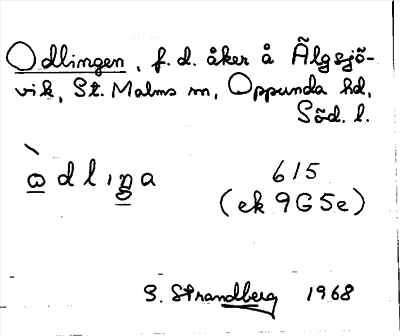 Odlingen, f. d. åker å Älgsjö-
vik, St. Malms sn, Oppunda hd,
Söd. l.
ὼdlıŋa 615
(ek 9G5e)
S. Strandberg 1968